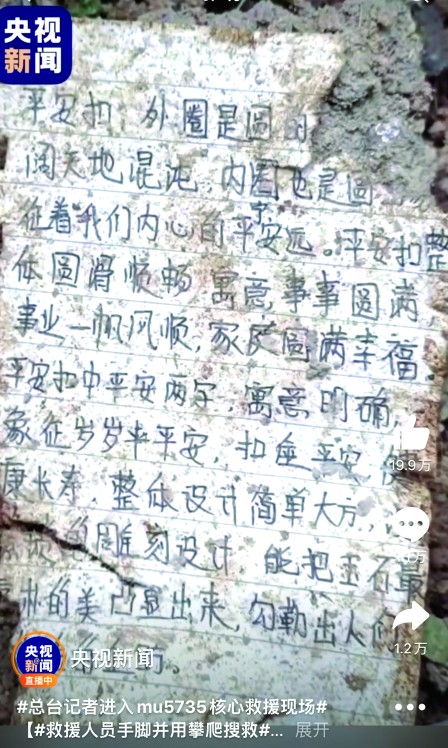 央视
新闻
平安扣 外圈是圆
阔天地混沌 内圈也是圆
征着我们内心的平安远。平安扣整
宁
体圆滑顺畅 寓意事事圆满
事业一帆风顺,家庭圆满幸福。
平安扣中平安两字,寓意明确,
象征岁岁年年平安,扣住平安,
康长寿。整体设计简单大方,
的雕刻设计 能把玉石最
的美凸显出来,勾勒出人们
19.9万
万
1.2万
央视
新闻
直播中
央视新闻
#总台记者进入mu5735核心救援现场#
【#救援人员手脚并用攀爬搜救#... 展开